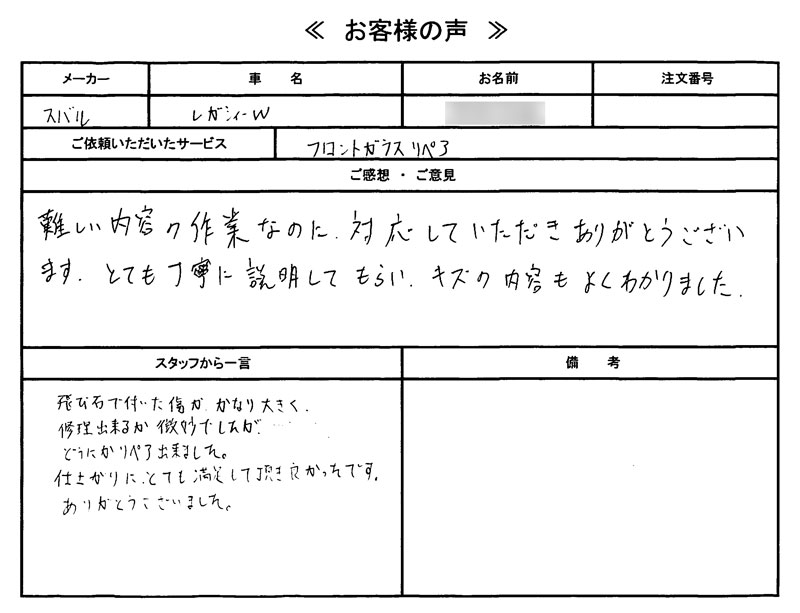 ≪ お客様の声 ≫
メーカー 車 名 お名前 注文番号
スバル レガシィーW
ご依頼いただいたサービス フロントガラスリペア
ご感想 ・ ご意見
難しい内容の作業なのに、対応していただきありがとうござい
ます。とても丁寧に説明してもらい、キズの内容もよくわかりました。
スタッフから一言 備 考
飛び石で付いた傷が、かなり大きく、
修理出来るか微妙でしたが、
どうにかリペア出来ました。
仕上がりに、とても満足して頂き良かったです。
ありがとうございました。